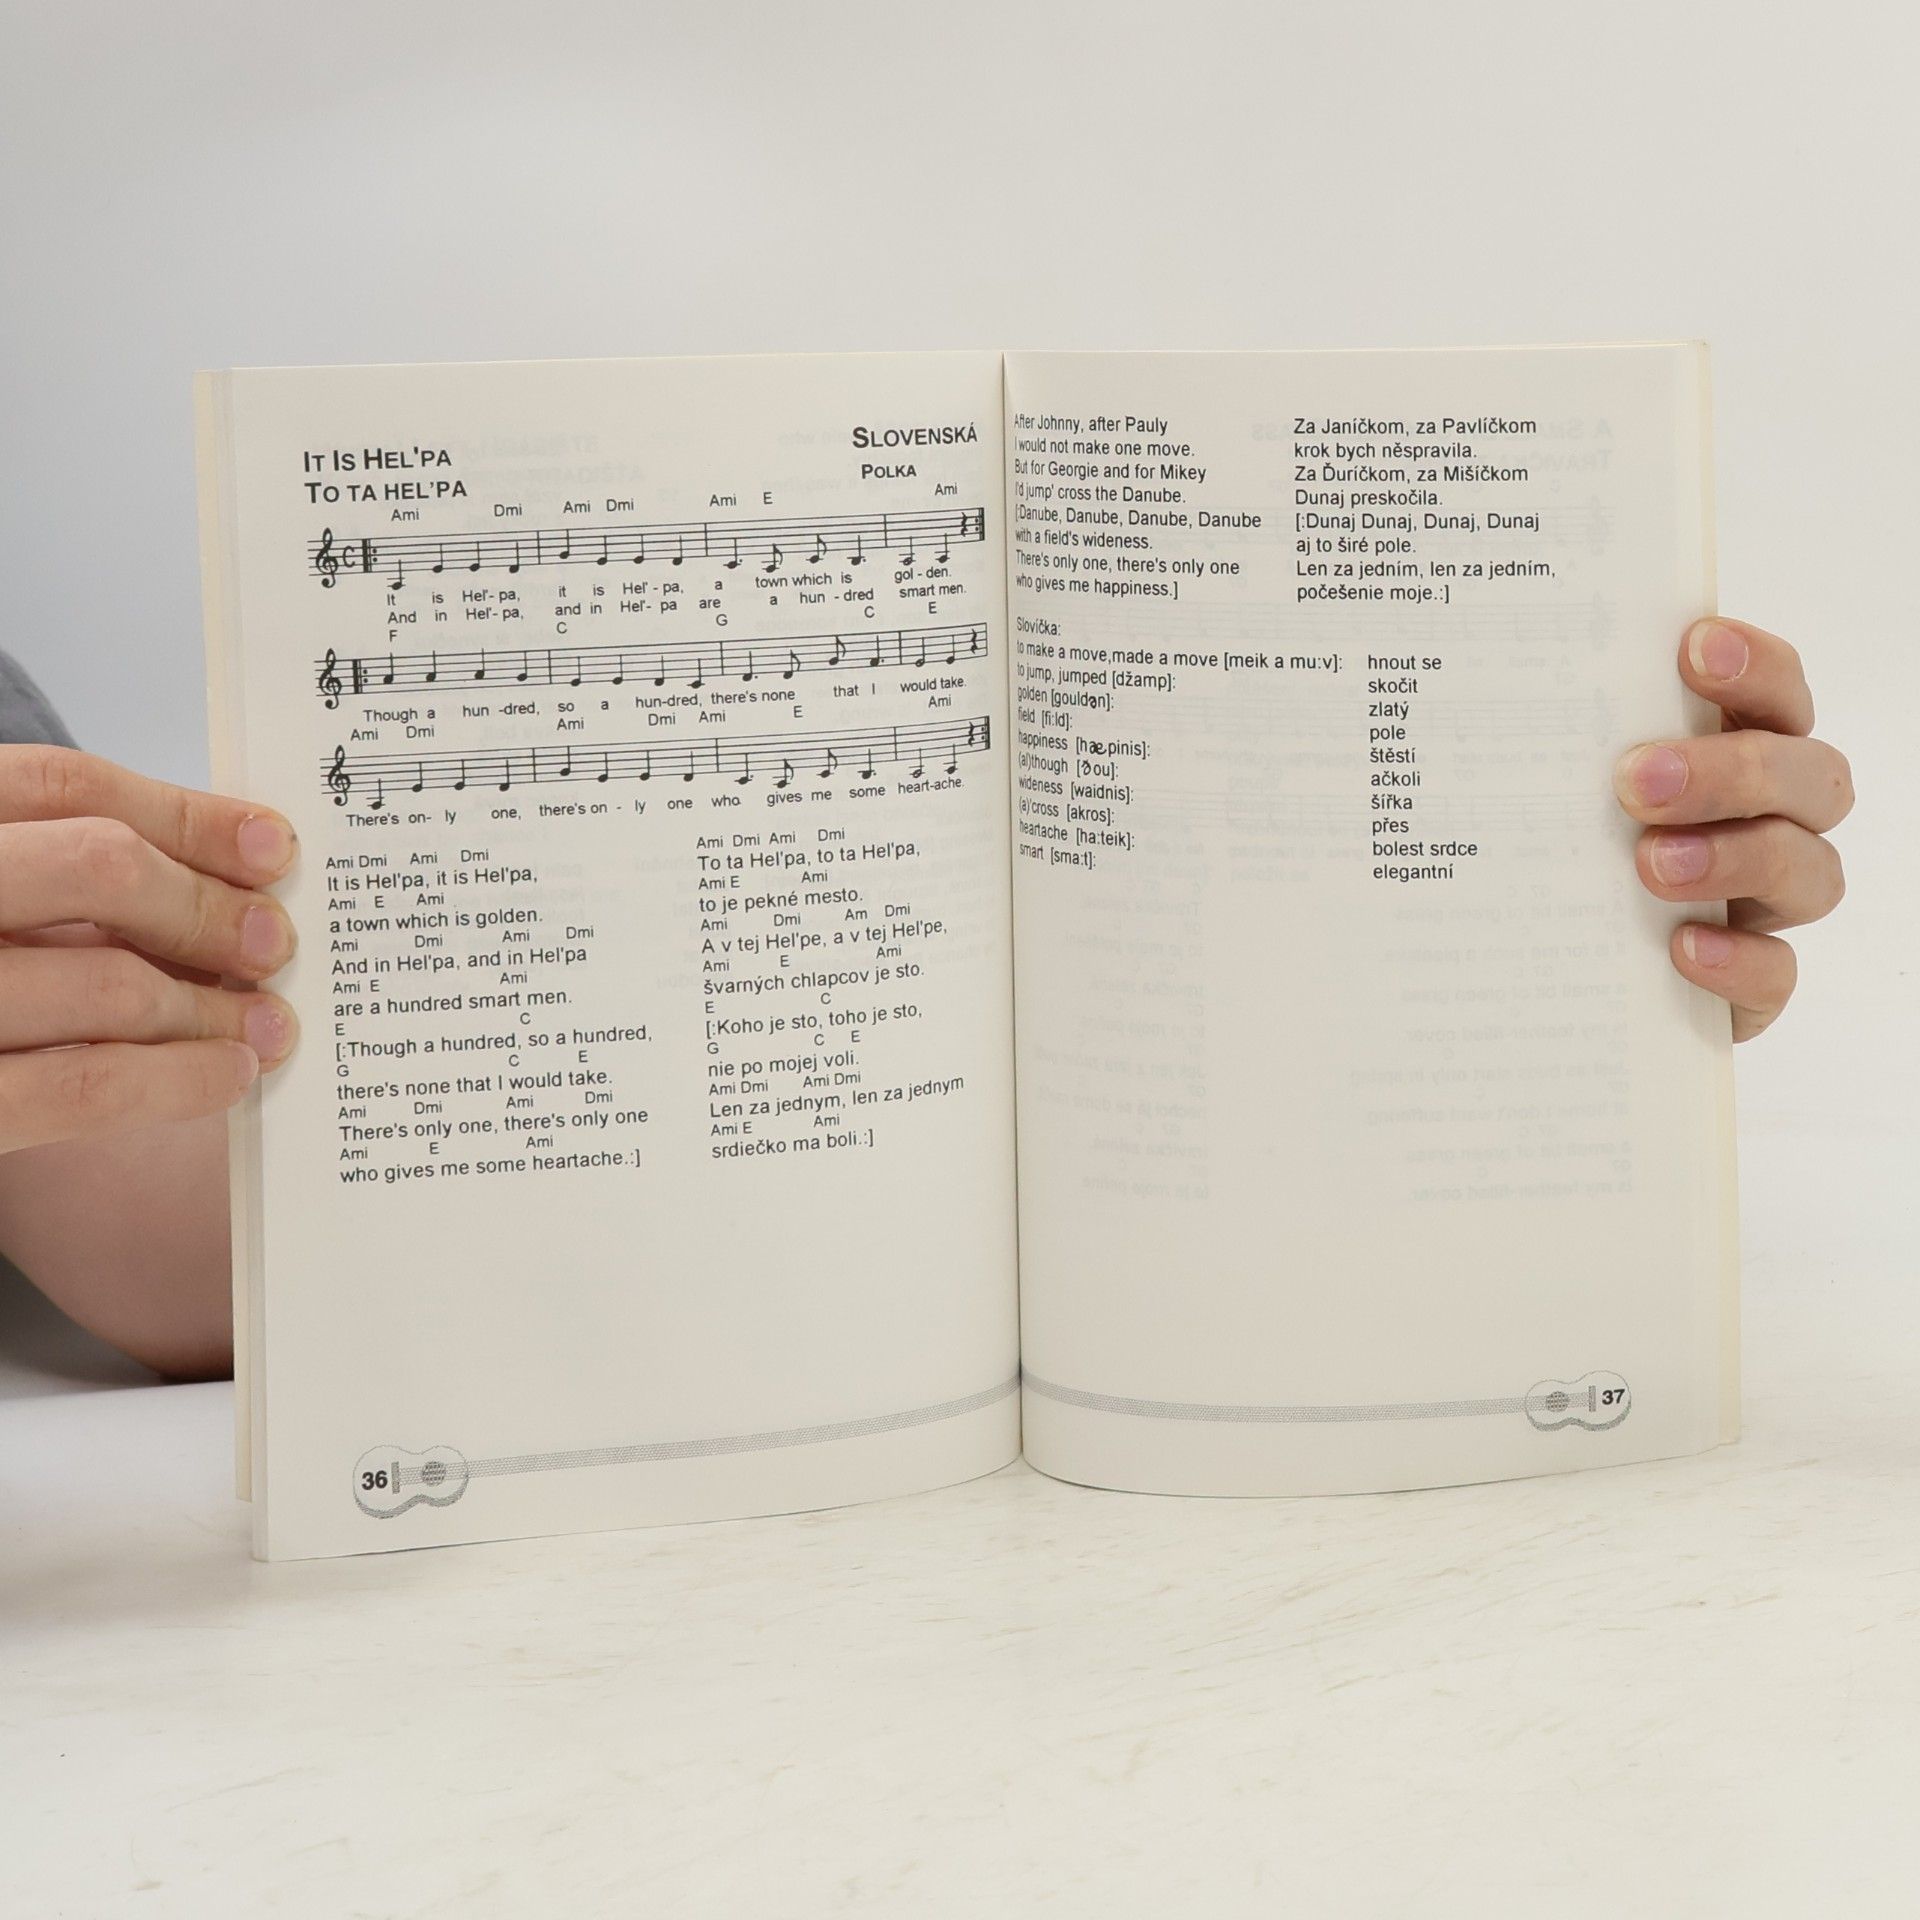 IT IS HEL'PA
TO TA HEL'PA
SLOVENSKÁ
POLKA
Ami Dmi Ami Dmi Ami E Ami
It is Hel'- pa, it is Hel' - pa, a town which is gol - den.
And in Hel'- pa, and in Hel'- pa are a hun - dred smart men.
F C G C E
Though a hun -dred, so a hun-dred, there's none that I would take.
Ami Dmi Ami Dmi Ami E Ami
There's on- ly one, there's on - ly one who gives me some heart-ache.
Ami Dmi Ami Dmi
It is Hel'pa, it is Hel'pa,
Ami E Ami
a town which is golden.
Ami Dmi Ami Dmi
And in Hel'pa, and in Hel'pa
Ami E Ami
are a hundred smart men.
E C
[:Though a hundred, so a hundred,
G C E
there's none that I would take.
Ami Dmi Ami Dmi
There's only one, there's only one
Ami E Ami
who gives me some heartache.:]
Ami Dmi Ami Dmi
To ta Hel'pa, to ta Hel'pa,
Ami E Ami
to je pekné mesto.
Ami Dmi Am Dmi
A v tej Hel'pe, a v tej Hel'pe,
Ami E Ami
švarných chlapcov je sto.
E C
[:Koho je sto, toho je sto,
G C E
nie po mojej voli.
Ami Dmi Ami Dmi
Len za jednym, len za jednym
Ami E Ami
srdiečko ma boli.:]
36
After Johnny, after Pauly
I would not make one move.
But for Georgie and for Mikey
I'd jump' cross the Danube.
[:Danube, Danube, Danube, Danube
with a field's wideness.
There's only one, there's only one
who gives me happiness.]
Za Janíčkom, za Pavlíčkom
krok bych něspravila.
Za Ďuríčkom, za Mišíčkom
Dunaj preskočila.
[:Dunaj Dunaj, Dunaj, Dunaj
aj to širé pole.
Len za jedním, len za jedním,
počešenie moje.:]
Slovíčka:
to make a move,made a move [meik a mu:v]: hnout se
to jump, jumped [džamp]: skočit
golden [gouldən]: zlatý
field [fi:ld]: pole
happiness [hæpinis]: štěstí
(al)though [ðou]: ačkoli
wideness [waidnis]: šířka
(a)'cross [akros]: přes
heartache [ha:teik]: bolest srdce
smart [sma:t]: elegantní
37